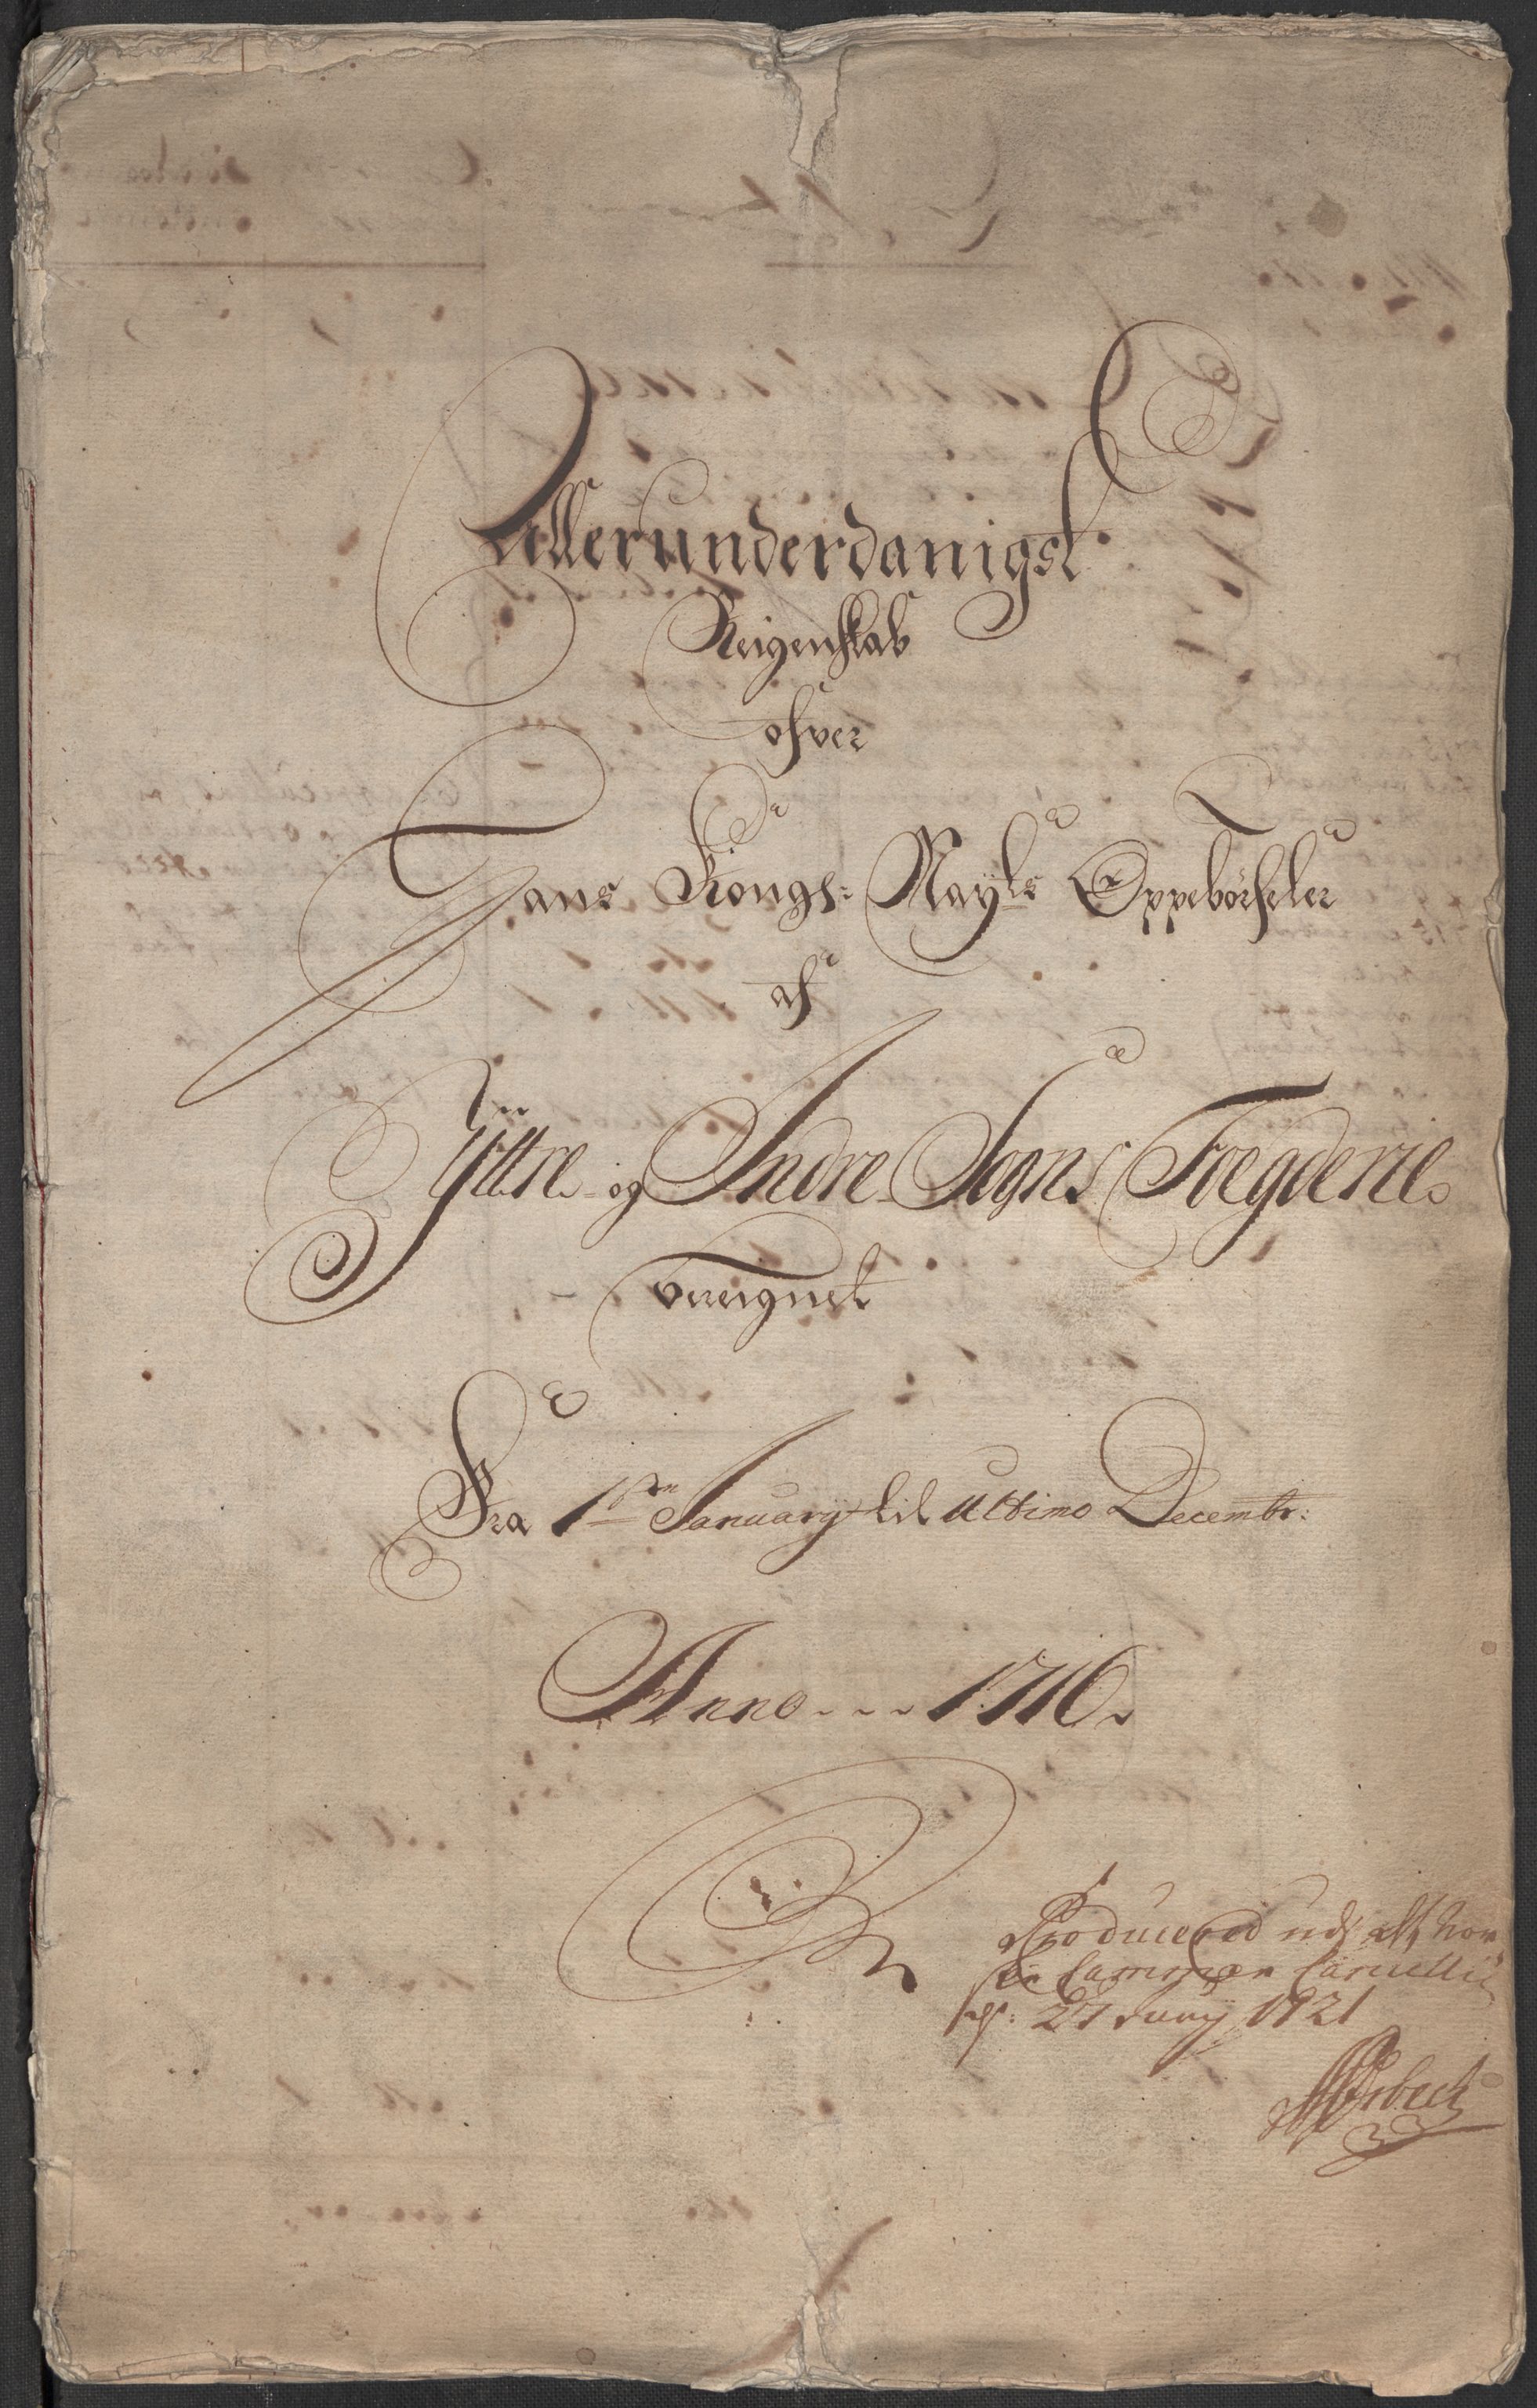 Allerunderdanigst
Reigenskab
ofver
Hans Kongs: Mayts Oppebörseler
af
Yttre og Indre Sogns Foegderie
bereignet
Fra 1ste January til Ultimo Decembr:
Anno 1716
Producered udi
Cammer
d: 27 Juny 1721